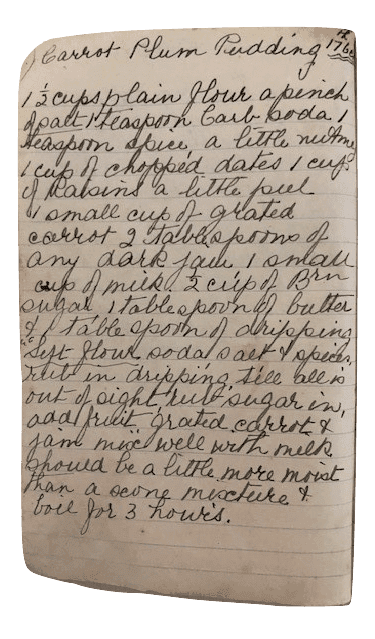 Carrot Plum Pudding 176
1 ½ cups plain flour a pinch
of salt 1 teaspoon Carb soda 1
teaspoon spice, a little nutmeg
1 cup of chopped dates 1 cup
of Raisins a little peel
1 small cup of grated
carrot 2 tablespoons of
any dark jam 1 small
cup of milk. ½ cup of Brn
sugar 1 tablespoon of butter
& 1 tablespoon of dripping
Sift flour soda salt & spices,
rub in dripping till all is
out of sight, rub sugar in,
add fruit, grated carrot &
jam mix well with milk.
Should be a little more moist
than a scone mixture &
boil for 3 hours.